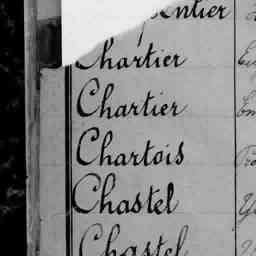 Chartier
Chartier
Chartois
Chastel
Chastel